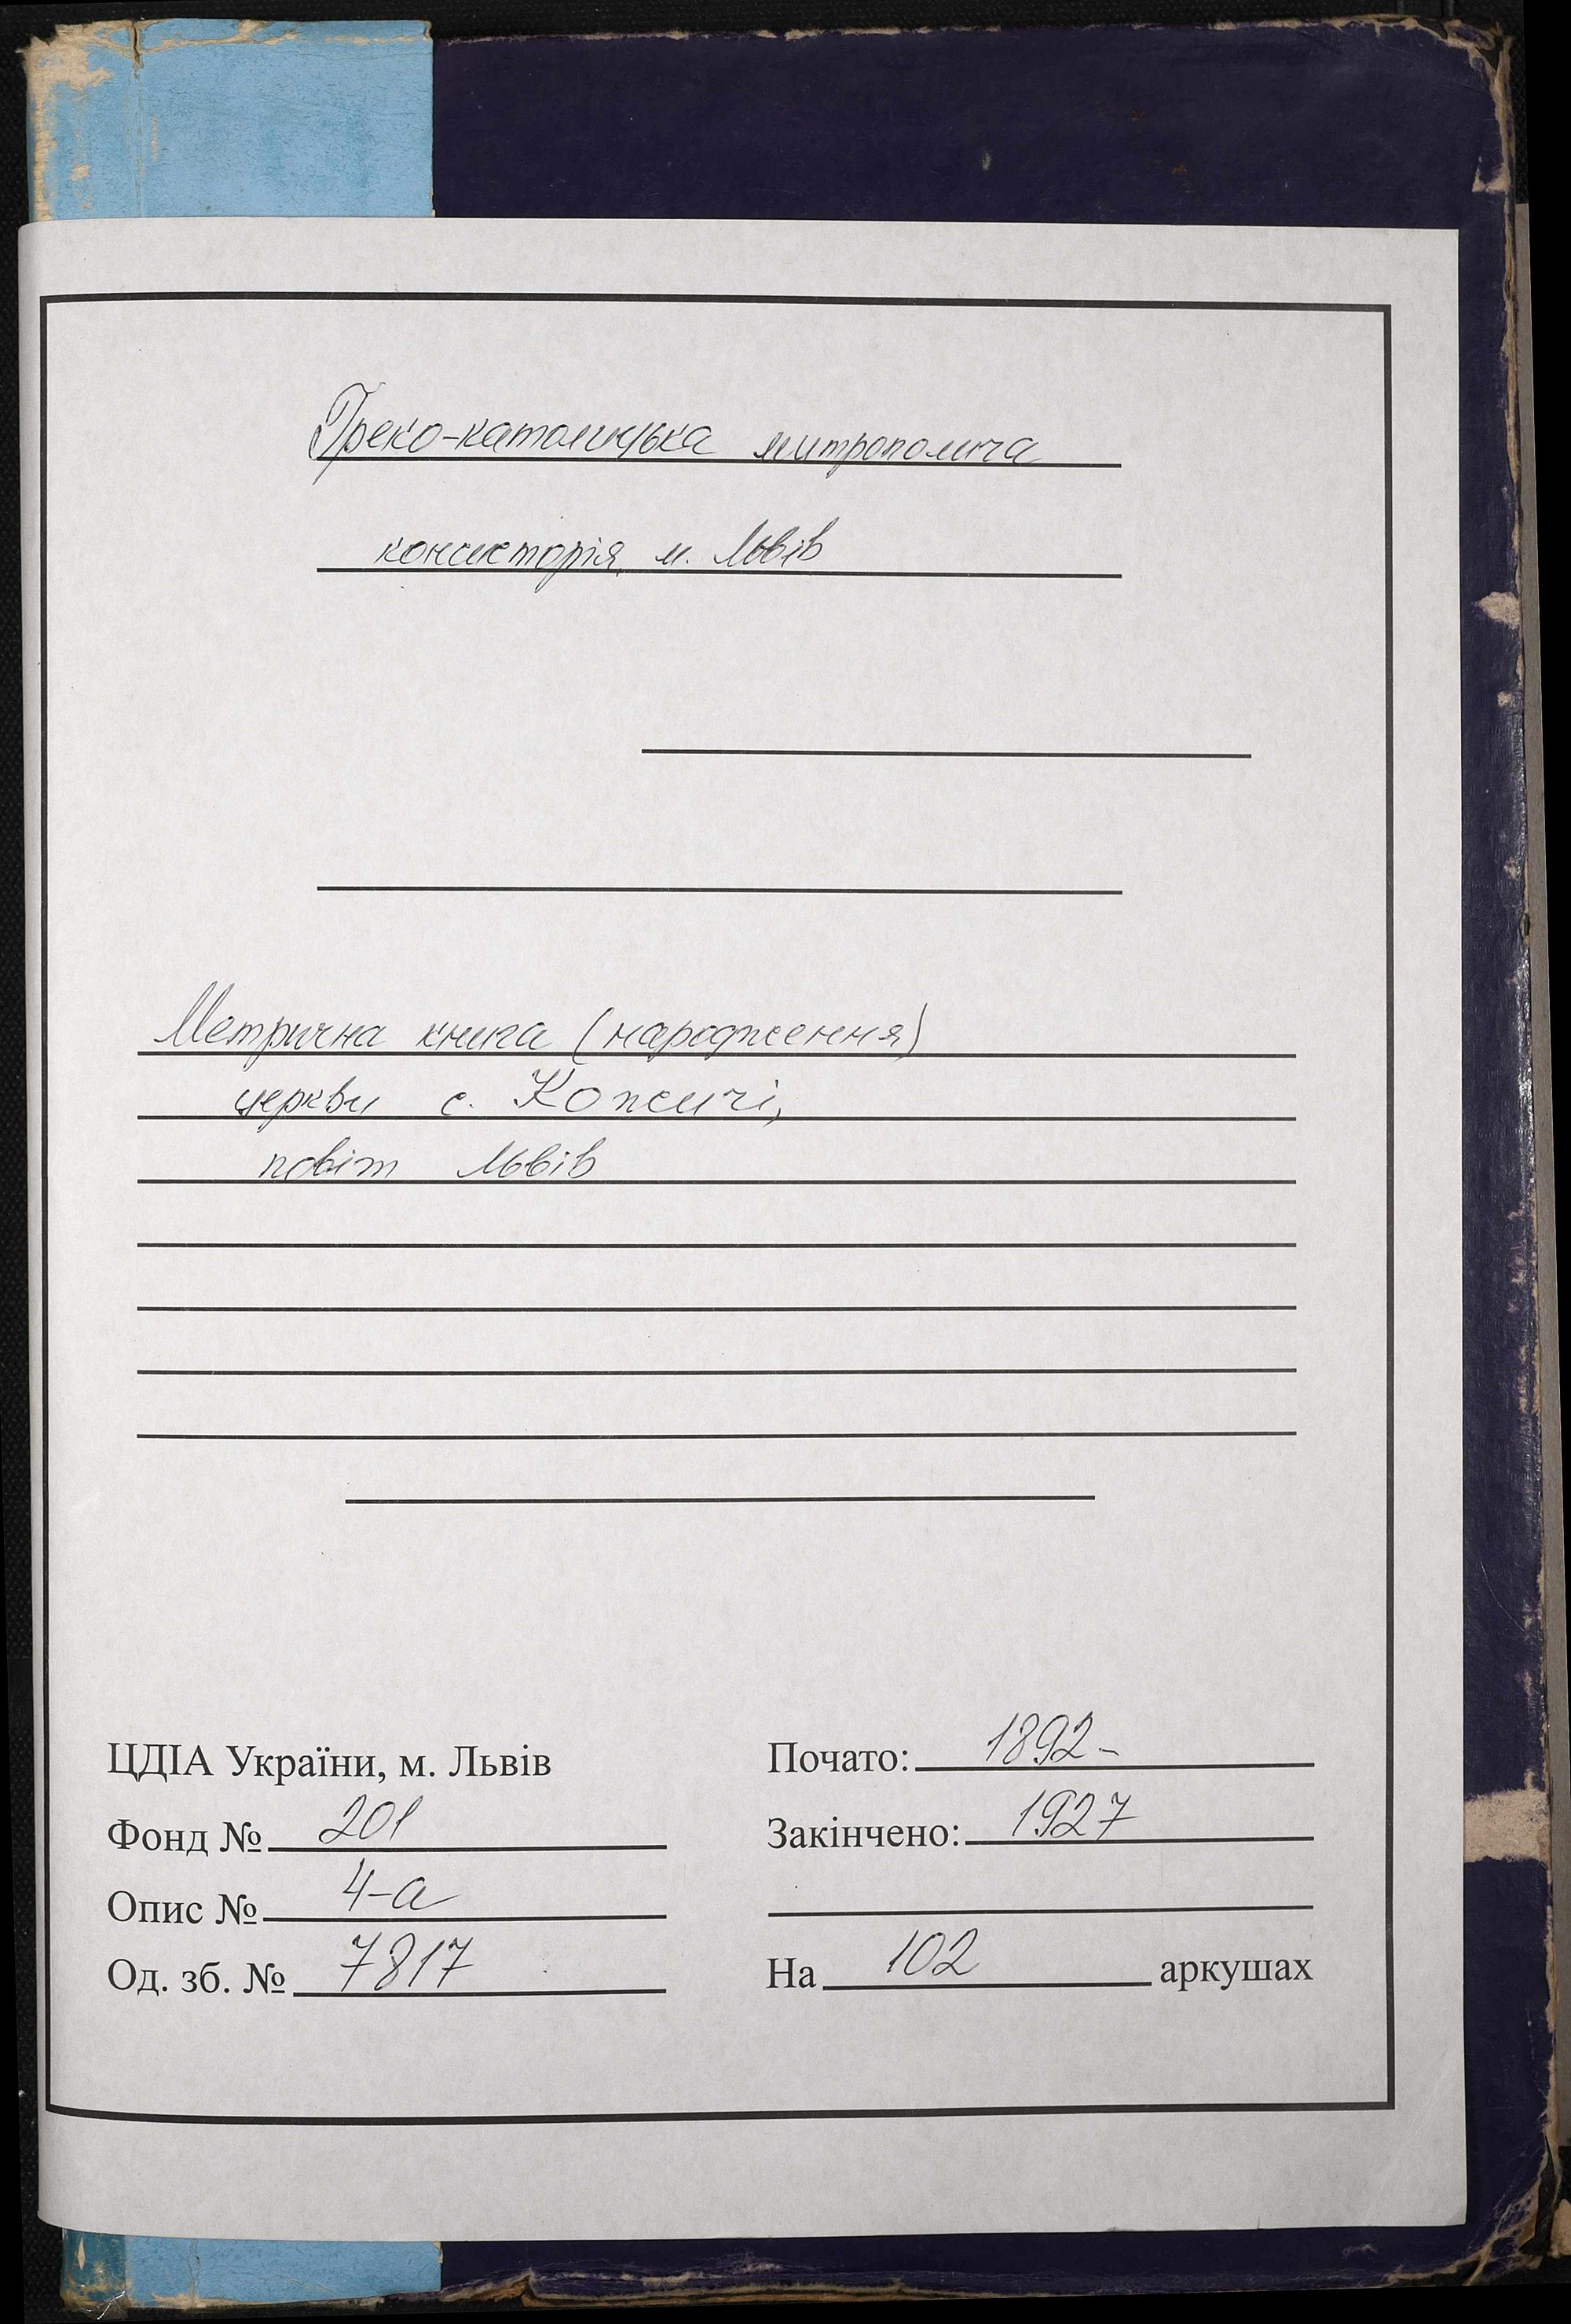 Греко-католицька митрополича
консисторія, м. Львів
Метрична книга (народження)
церкви с. Кожичі,
повіт Львів
ЦДІА України, м. Львів
Фонд № 201
Опис № 4-а
Од. зб. № 7817
Почато: 1892-
Закінчено: 1927
На 102 аркушах